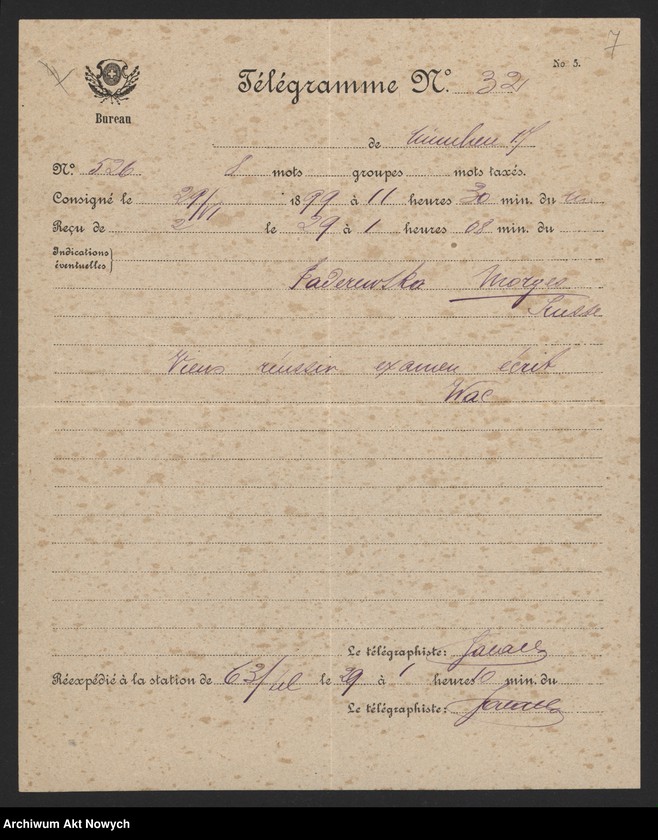 7
No 5.
Télégramme No. 32
Bureau
de
No. 536 8 mots groupes mots taxés.
Consigné le 29/VI 1899 à 11 heures 30 min. du
Reçu de le 29 à 1 heures 08 min. du
Indications
éventuelles
Paderewska Morges
Suisse
Viens réussir examen écrit
Wac
Le télégraphiste:
Réexpédié à la station de le 29 à 1 heures 10 min. du
Le télégraphiste:
Archiwum Akt Nowych